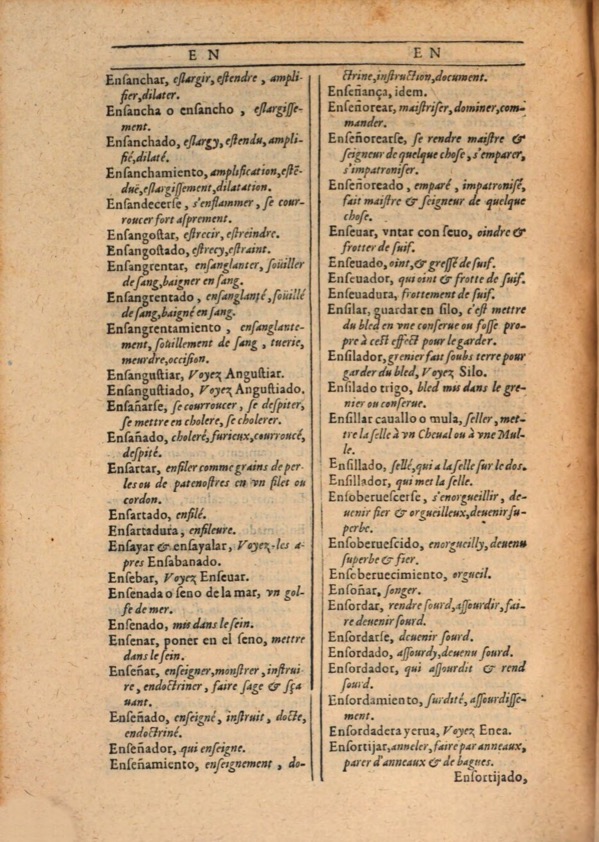 EN
Ensanchar, eslargir, estendre, ampli-
fier, dilater.
Ensancha o ensancho, eslargisse-
ment.
Ensanchado, eslargy, estendu, ampli-
fié, dilaté.
Ensanchamiento, amplification, estẽ-
duë, eslargissement, dilatation.
Ensandecerse, s'enflammer, se cour-
roucer fort asprement.
Ensangostar, estrecir, estreindre.
Ensangostado, estrecy, estraint.
Ensangrentar, ensanglanter, soüiller
de sang, baigner en sang.
Ensangrentado, ensanglanté, soüillé
de sang, baigné en sang.
Ensangrentamiento, ensanglante-
ment, soüillement de sang, tuerie,
meurdre, occision.
Ensangustiar, Voyez Angustiar.
Ensangustiado, Voyez Angustiado.
Ensañarse, se courroucer, se despiter,
se mettre en cholere, se cholerer.
Ensañado, choleré, furieux, courroucé,
despité.
Ensartar, enfiler comme grains de per-
les ou de patenostres en vn filet ou
cordon.
Ensartado, enfilé.
Ensartadura, enfileure.
Ensayar & ensayalar, Voyez-les a-
pres Ensabanado.
Ensebar, Voyez Enseuar.
Ensenada o seno de la mar, vn gol-
fe de mer.
Ensenado, mis dans le sein.
Ensenar, poner en el seno, mettre
dans le sein.
Enseñar, enseigner, monstrer, instrui-
re, endoctriner, faire sage & sça
uant.
Enseñado, enseigné, instruit, docte,
endoctriné.
Enseñador, qui enseigne.
Enseñamiento, enseignement, do-
EN
ctrine, instruction, document.
Enseñança, idem.
Enseñorear, maistriser, dominer, com-
mander.
Enseñorearse, se rendre maistre &
seigneur de quelque chose, s'emparer,
s'impatroniser.
Enseñoreado, emparé, impatronisé,
fait maistre & seigneur de quelque
chose.
Enseuar, vntar con seuo, oindre &
frotter de suif.
Enseuado, oint, & gressé de suif.
Enseuador, qui oint & frotte de suif.
Enseuadura, frottement de suif.
Ensilar, guardar en silo, c'est mettre
du bled en vne conserue ou fosse pro-
pre à cest effect pour le garder.
Ensilador, grenier fait soubs terre pour
garder du bled, Voyez Silo.
Ensilado trigo, bled mis dans le gre-
nier ou conserue.
Ensillar cauallo o mula, seller, met-
tre la selle à vn Cheual ou à vne Mul-
le.
Ensillado, sellé, qui a la selle sur le dos.
Ensillador, qui met la selle.
Ensoberuescerse, s'enorgueillir, de-
uenir fier & orgueilleux, deuenir su-
perbe.
Ensoberuescido, enorgueilly, deuenu
superbe & fier.
Enseberuecimiento, orgueil.
Ensoñar, songer.
Ensordar, rendre sourd, assourdir, fai-
re deuenir sourd.
Ensordarse, deuenir sourd.
Ensordado, assourdy, deuenu sourd.
Ensordador, qui assourdit & rend
sourd.
Ensordamiento, surdité, assourdisse-
ment.
Ensordadera yerua, Voyez Enea.
Ensortijar, anneler, faire par anneaux,
parer d'anneaux & de bagues.
Ensortijado,